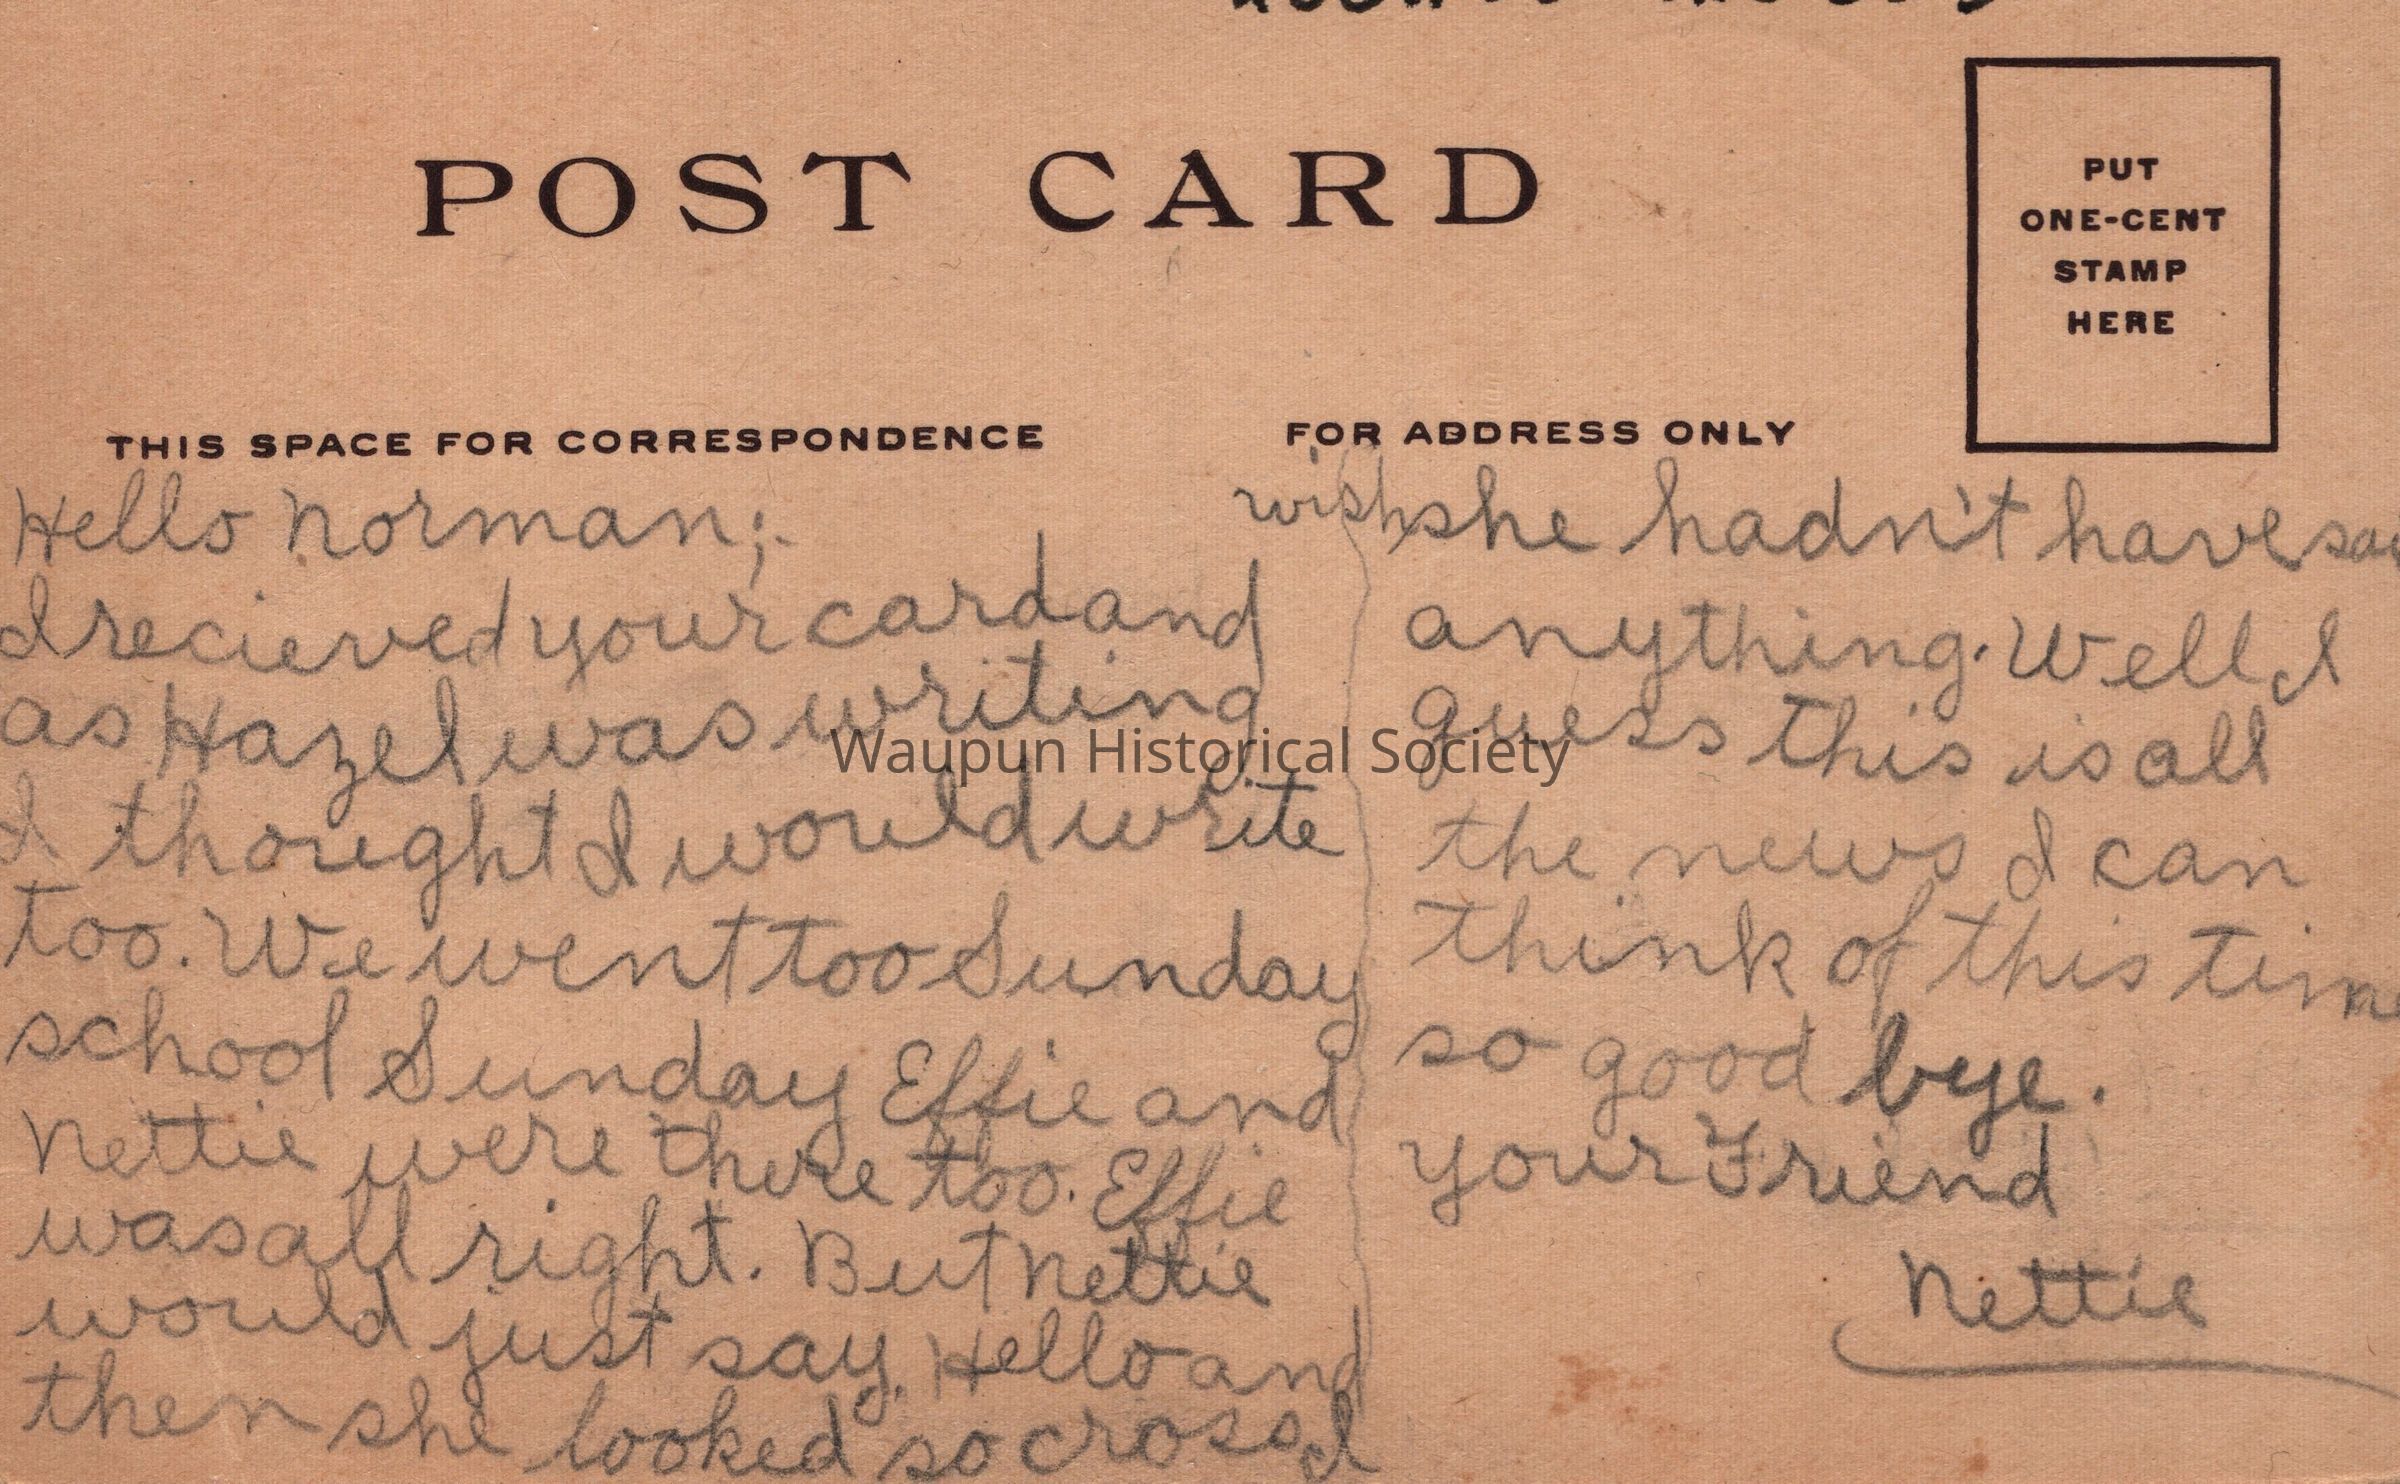 POST CARD
PUT
ONE-CENT
STAMP
HERE
THIS SPACE FOR CORRESPONDENCE
FOR ADDRESS ONLY
Hello Norman;
I recieved your card and
as Hazel was writing
I thought I would write
too. We went too Sunday
school Sunday Effie and
Nettie were there too. Effie
was all right. But Nettie
would just say. Hello and
then she looked so cross I
wish she hadn't have
anything. Well I
guess this is all
the news I can
think of this time
so good bye.
your Friend
Nettie
Waupun Historical Society